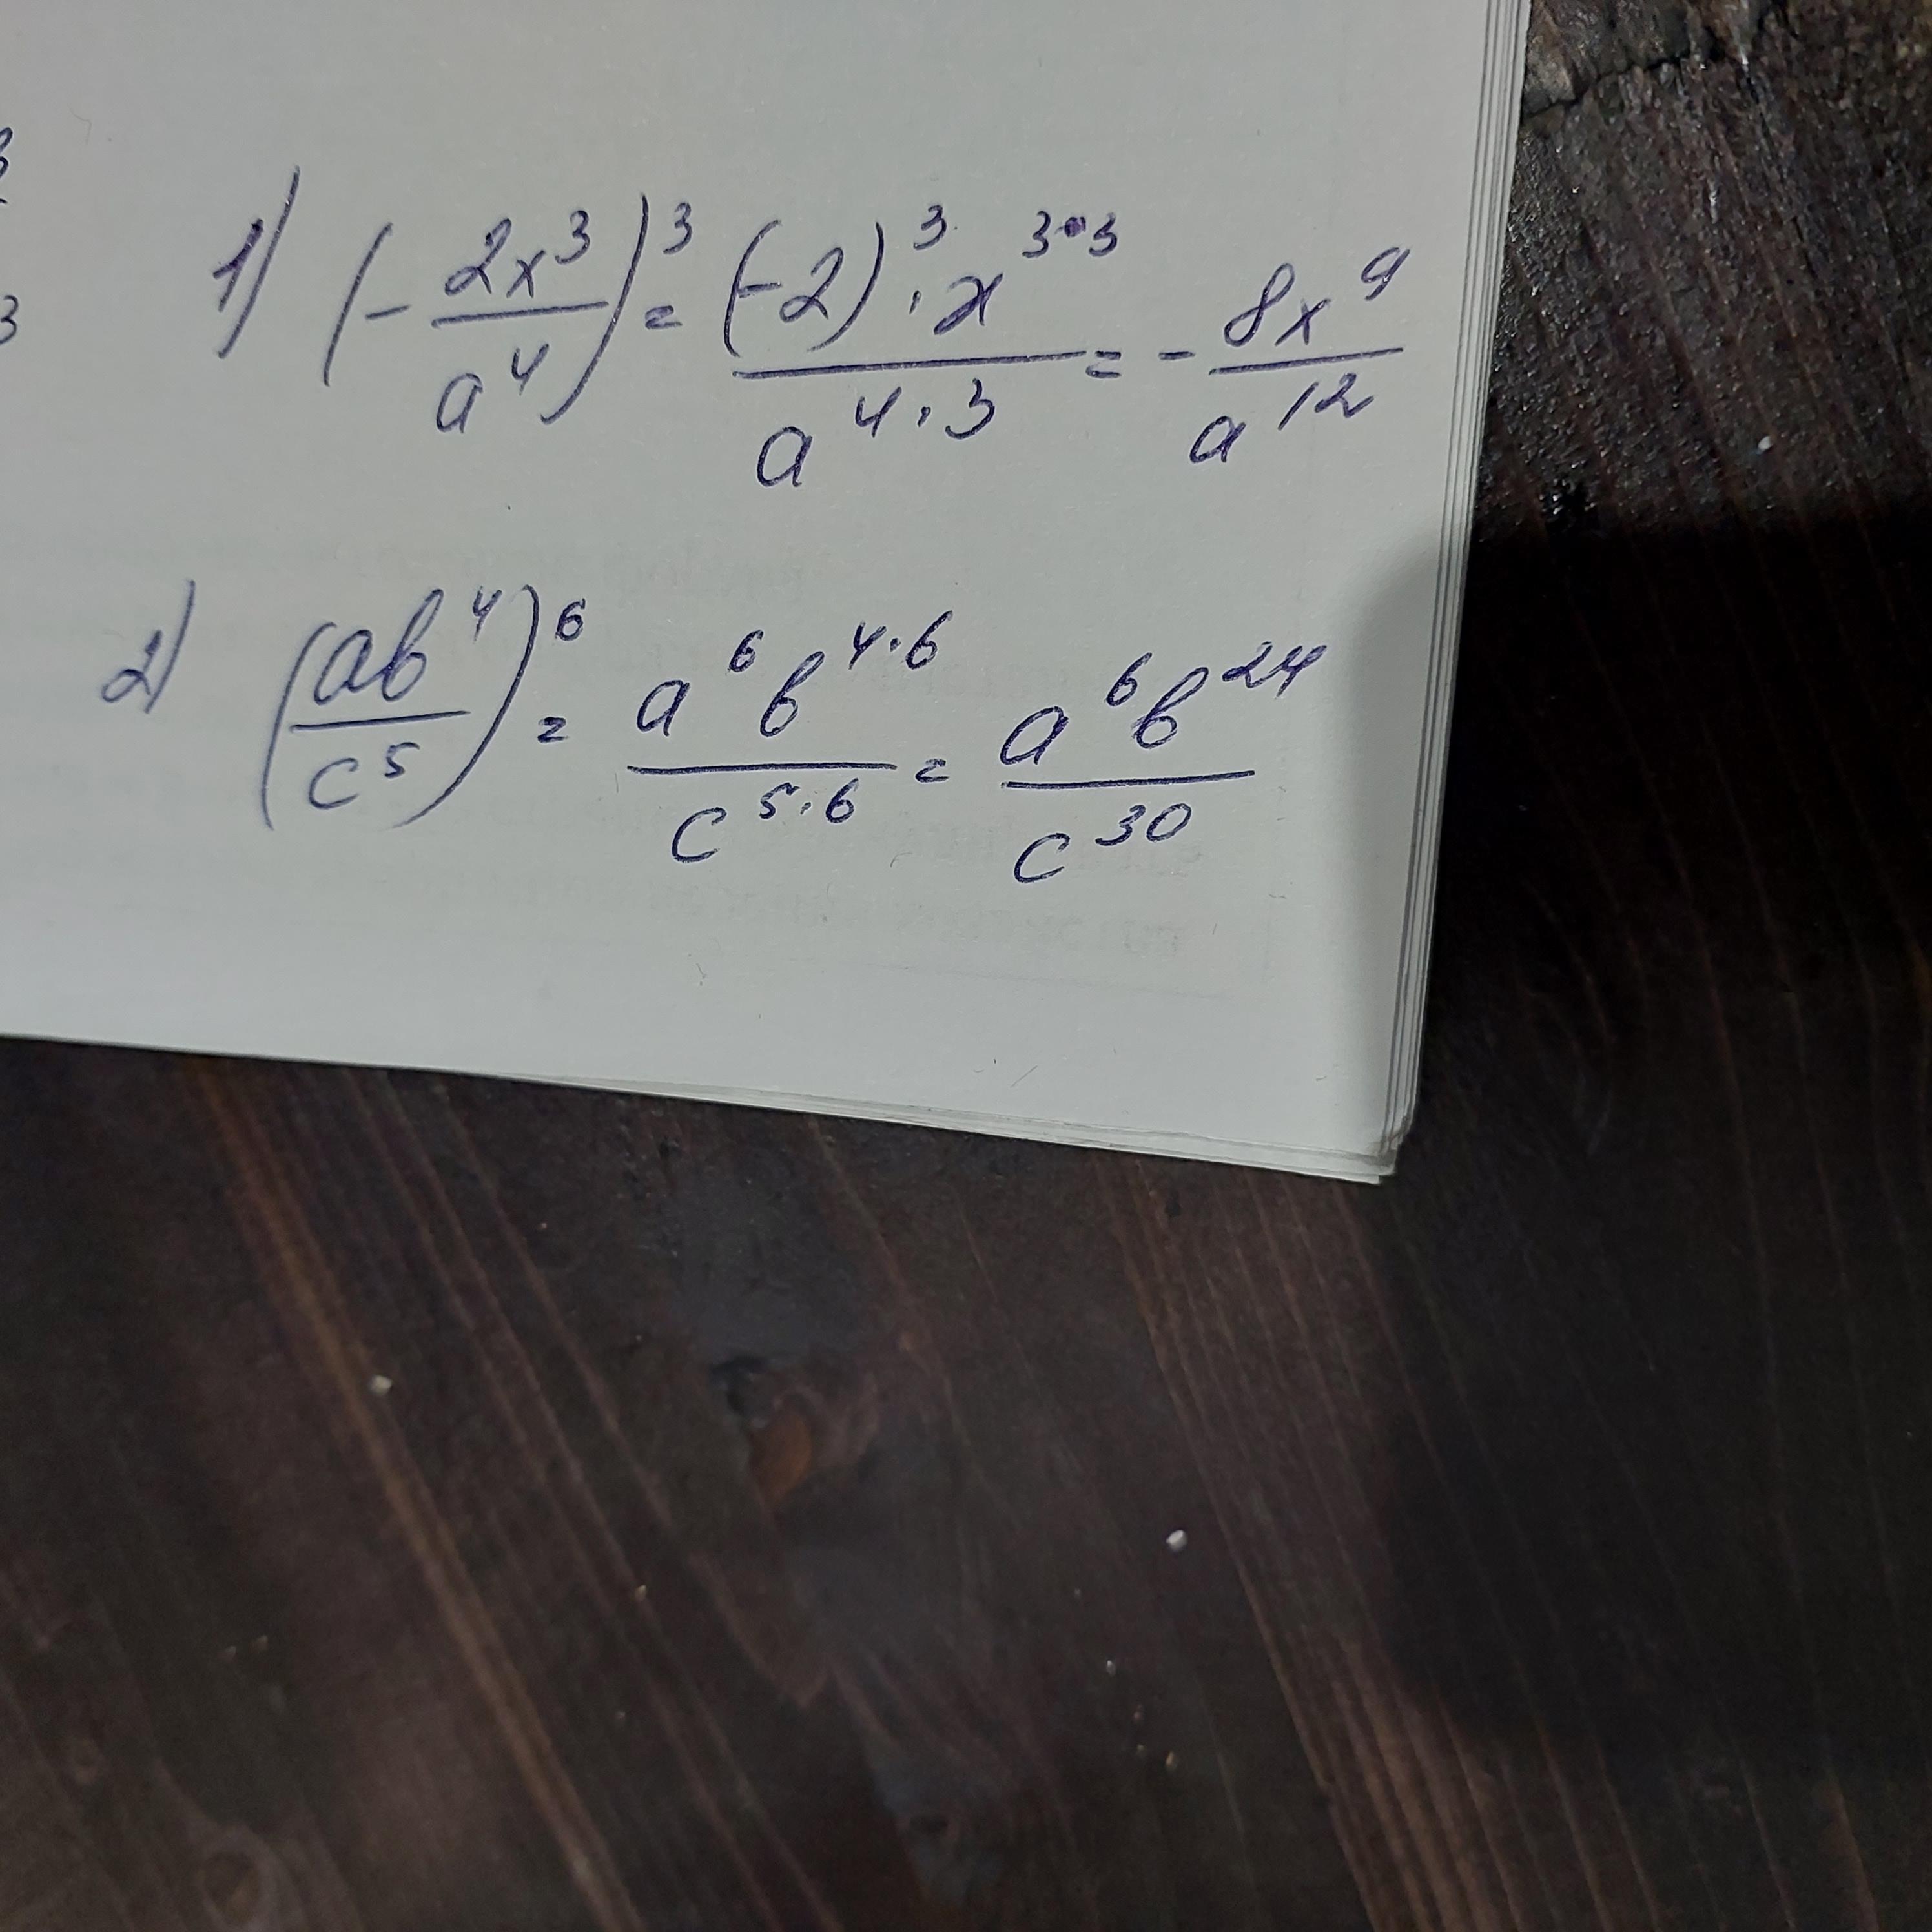 1) (-2x³/a⁴)³ = (-2)³·x³˙³/a⁴˙³ = -8x⁹/a¹²
2) (ab⁴/c⁵)⁶ = a⁶b⁴˙⁶/c⁵˙⁶ = a⁶b²⁴/c³⁰